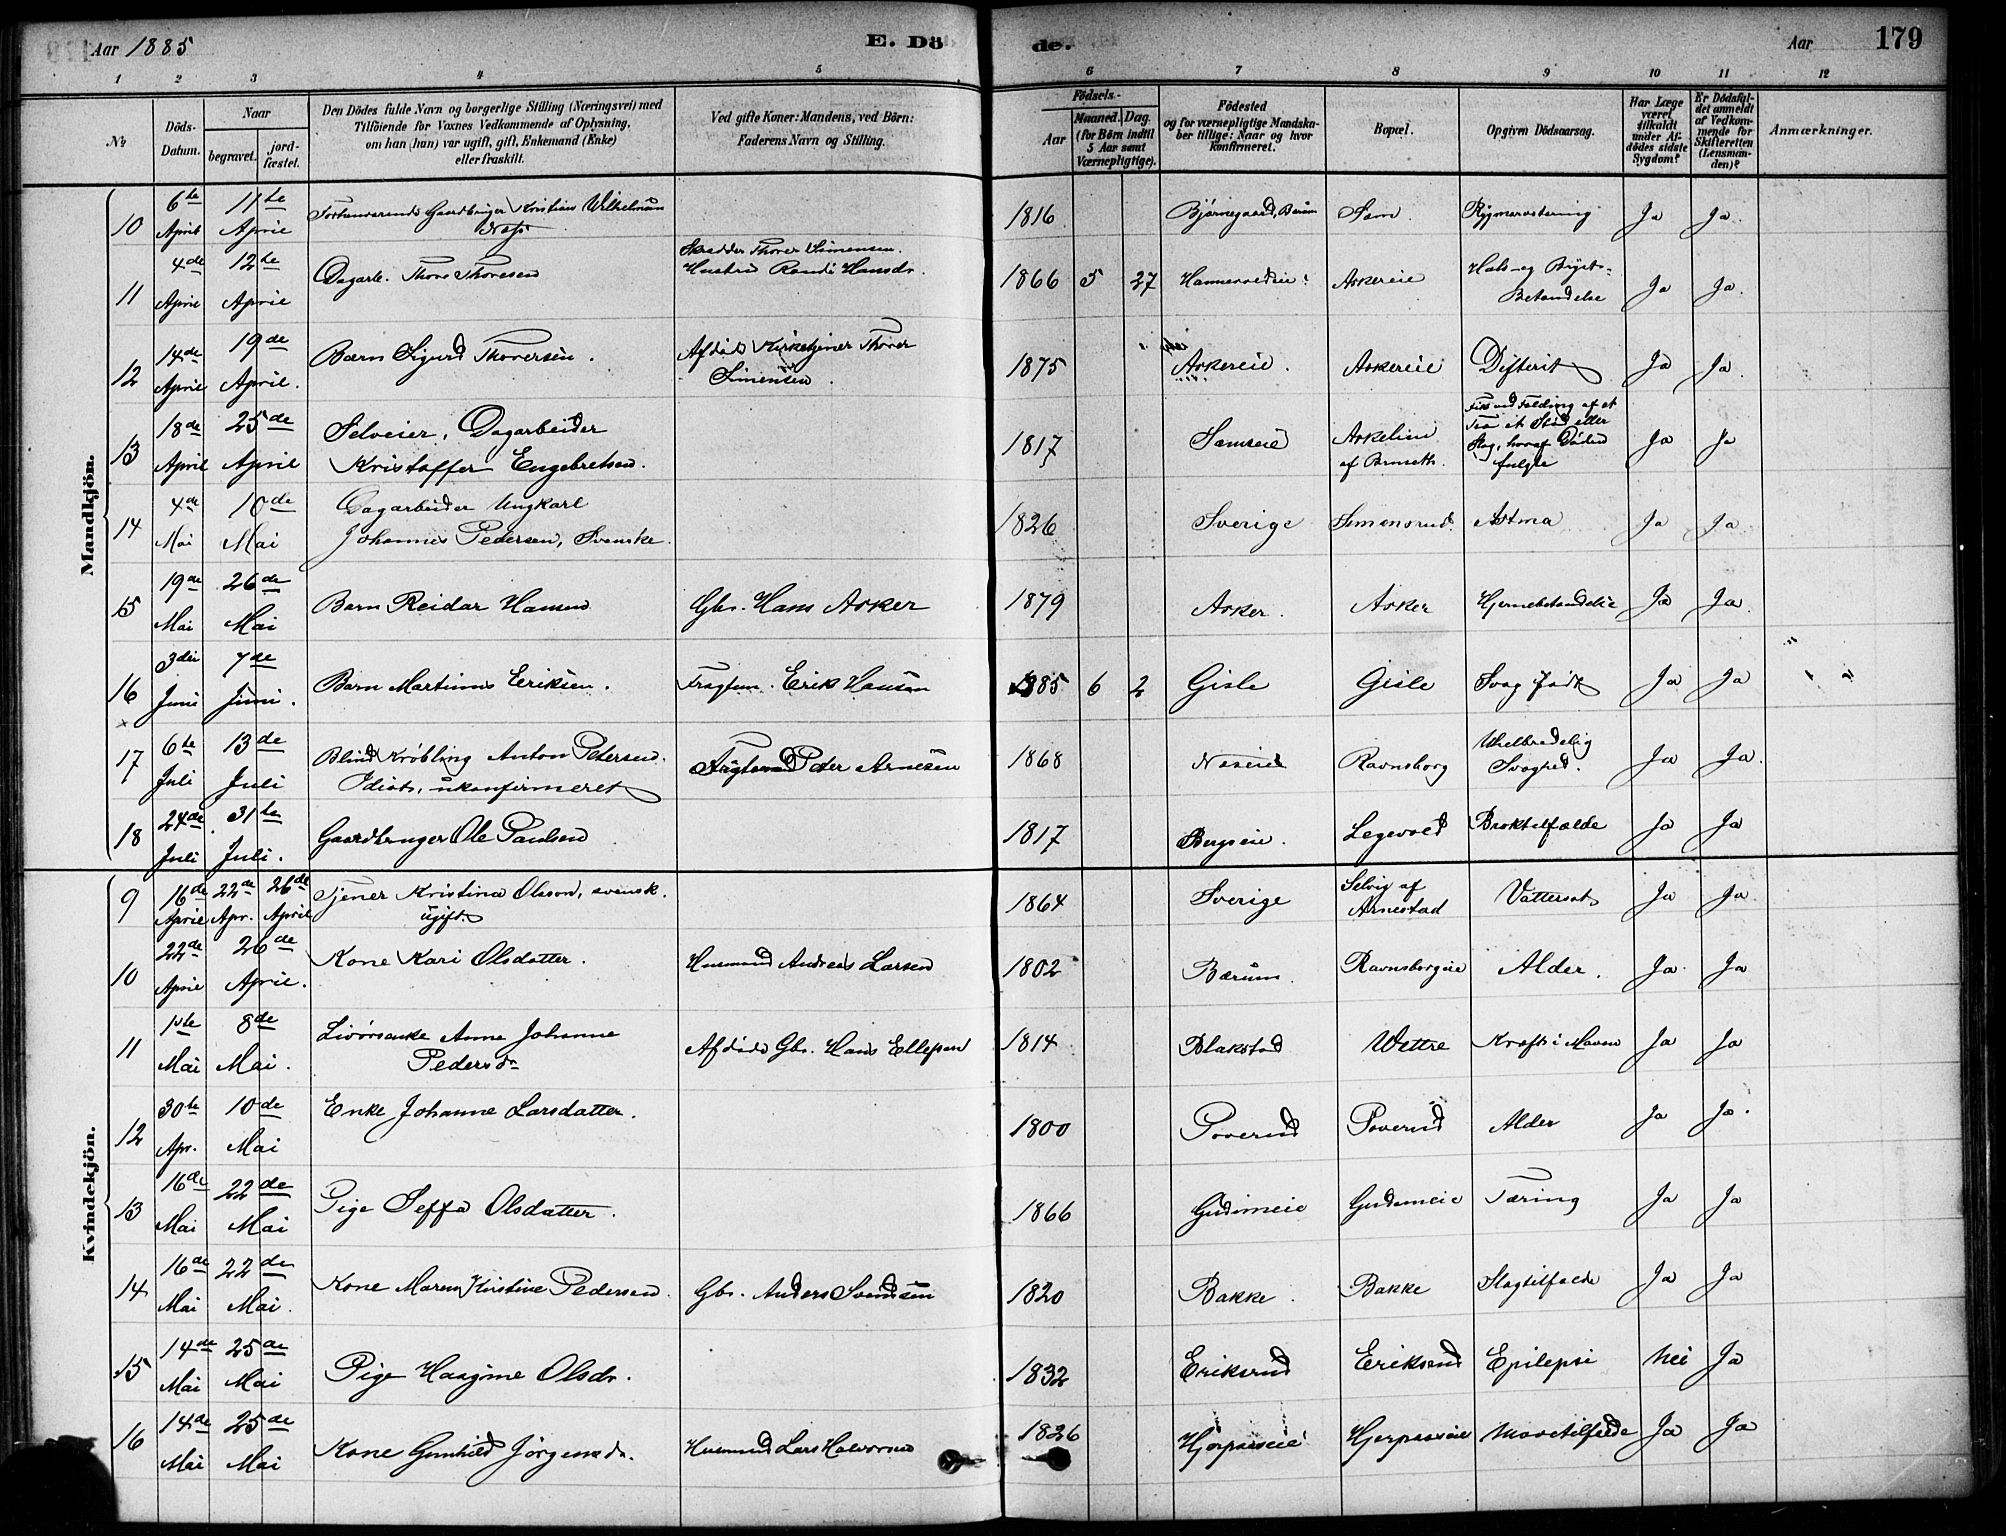 Aar 1885
E. Dö
de.
Aar
179
1 2 3 4 5 6 7 8 9 10 11 12
No
Döds-
Datum.
Naar
begravet.
jord-
fæstet.
Den Dödes fulde Navn og borgerlige Stilling (Næringsvei) med
Tilföiende for Voxnes Vedkommende af Oplysning,
om han (hun) var ugift, gift, Enkemand (Enke)
eller fraskilt.
Ved gifte Koner: Mandens, ved Börn:
Faderens Navn og Stilling.
Födsels-
Aar
Maaned. Dag.
(for Börn indtil
5 Aar samt
Værnepligtige).
Födested
og for værnepligtige Mandska-
ber tillige: Naar og hvor
konfirmeret.
Bopæl.
Opgiven Dödsaarsag.
Har Læge
været
tilkaldt
under Af-
dödes sidste
Sygdom?
Er Dödsfal-
det anmeldt
af Vedkom-
mende for
Skifteretten
(Lensman-
den)?
Anmærkninger.
Mandkjön.
10 6te April 11te April Forhenværende Gaardbruger Kristian Wilhelmsen 1816 Bjørnegaard, Bærum Sem Ja Ja
11 4de April 12te April Dagarb. Thore Thoresen Skrædder Thorer Simensen.
Hustru Randi Hansdr. 1866 5 27 Askereie Hals- og Bryst-
Betændelse Ja Ja.
12 14de April 19de April. Barn Sigurd Thoresen. Afdøde Kirketjener Thorer
Simensen. 1875 Askereie. Askereie Difterit Ja Ja.
13 18de April 25de April Selveier, Dagarbeider
Kristoffer Engebretsen. 1817 Semseie
af Fik ved Fældning af et
Træ et Stød eller
Slag, hvoraf Døden
fulgte Ja Ja
14 4de Mai 10de Mai Dagarbeider Ungkarl
Johannes Pedersen, Svenske. 1826 Sverige Simensrud. Astma Ja Ja
15 19de Mai 26de Mai Barn Reidar Hansen Gbr. Hans Asker 1879 Asker. Asker Hjernebetændelse Ja Ja.
16 3die Juni 7de Juni. Barn Martinus Eriksen. Fragtem. Erik Hansen 1885 6 2 Gisle Gisle Svag født Ja Ja
17 6te Juli 13de Juli Blind Krøbling Anton Petersen.
Idiot, ukonfirmeret Peter Arnesen 1868 Næseie Ravnsborg Uhelbredelig
Svaghed. Ja Ja.
18 24de Juli 31te Juli. Gaardbruger Ole Paulsen 1817 Bergseie. Legevold Broktilfælde Ja Ja
Kvindekjön.
9 16de April 22de Apr. 26de April Tjener Kristina Olsson, svensk.
ugift. 1864 Sverige Selvig af
Arnestad Vattersot Ja Ja
10 22de April 26de April. Kone Kari Olsdatter. Husmand Andreas Larsen 1802 Bærum. Ravnsborgeie Alder. Ja Ja
11 1ste Mai 8de Mai. Livørsenke Anne Johanne
Pedersdr Afdøde Gbr. Hans Ellefsen 1814 Blakstad Wettre Kræft i Maven Ja Ja
12 30te Apr. 10de Mai Enke Johanne Larsdatter. 1800 Poverud Poverud Alder Ja Ja.
13 16de Mai 22de Mai Pige Seffa Olsdatter. 1866 Gudimeie Gudimeie Tæring Ja Ja
14 16de Mai 22de Mai. Kone Maren Kirstine Pedersen. Gbr. Anders Svendsen 1820 Bakke. Bakke Slagtilfælde Ja Ja
15 14de Mai 25de Mai Pige Haagine Olsdr. 1832 Eriksrud Eriksrud Epilepsi Nei Ja
16 14de Mai 25de Mai Kone Gunhild Jörgensdr. Husmand Lars Halvorsen 1826 Mavetilfælde Ja Ja